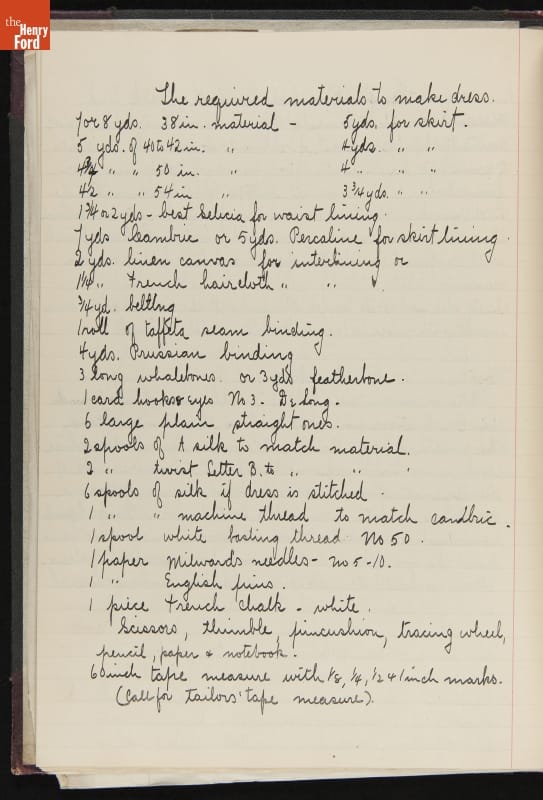 the
Henry
Ford
The required materials to make dress.
7 or 8 yds. 38 in. material - 5 yds. for skirt.
5 yds. of 40 to 42 in. " 4 yds. " "
4 3/4 " " 50 in. " 4 " " "
4 1/2 " " 54 in " 3 3/4 yds. " "
1 3/4 or 2 yds - best Selicia for waist lining.
7 yds Cambric or 5 yds. Percaline for skirt lining.
2 yds. linen canvas for interlining or
1 1/4 " French haircloth " " .
3/4 yd. belting
1 roll of taffeta seam binding.
4 yds. Prussian binding
3 long whalebones or 3 yds featherbone.
1 card hooks & eyes No 3. De Long.
6 large plain straight ones.
2 spools of A silk to match material.
2 " twist Letter B. to " " "
6 spools of silk if dress is stitched.
1 " " machine thread to match cambric.
1 spool white basting thread No 50.
1 paper Milwards needles - no 5-10.
1 " English pins.
1 piece French chalk - white.
Scissors, thimble, pincushion, tracing wheel,
pencil, paper & notebook.
60 inch tape measure with 1/8, 1/4, 1/2 & 1 inch marks.
(Call for tailors' tape measure).